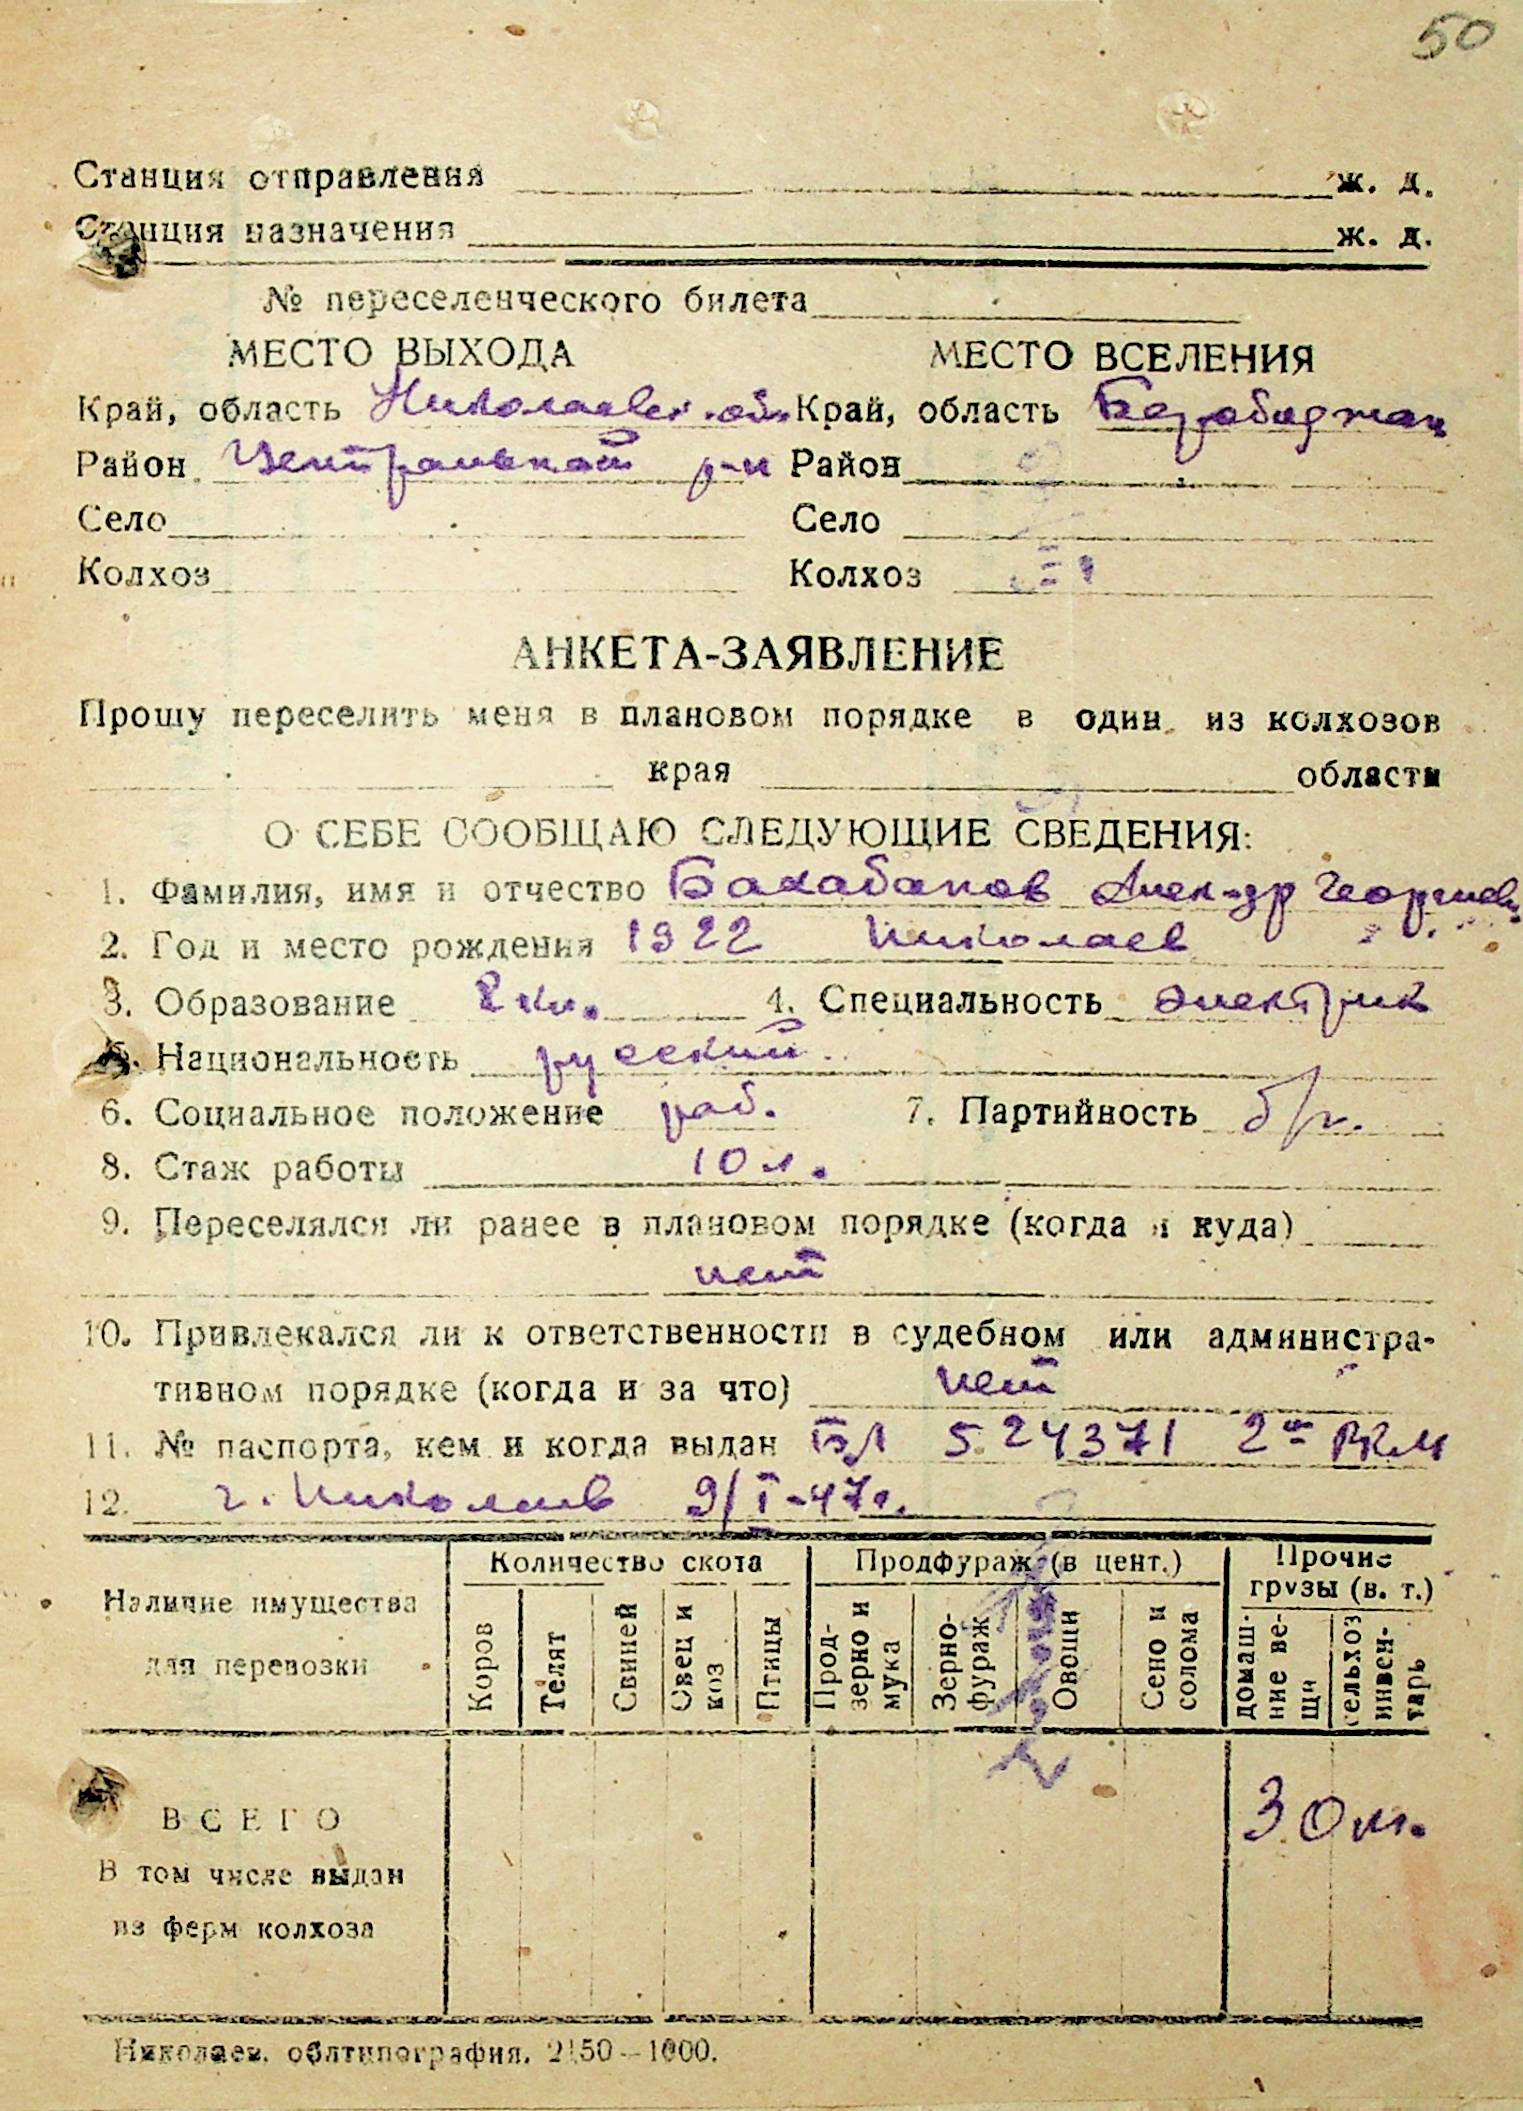 50
Станция отправления ж. д.
Станция назначения ж. д.
№ переселенческого билета
МЕСТО ВЫХОДА МЕСТО ВСЕЛЕНИЯ
Край, область Николаевск. обл. Край, область Беробиджан
Район Центральный р-н Район
Село Село
Колхоз Колхоз
АНКЕТА-ЗАЯВЛЕНИЕ
Прошу переселить меня в плановом порядке в один из колхозов
края области
О СЕБЕ СООБЩАЮ СЛЕДУЮЩИЕ СВЕДЕНИЯ:
1. Фамилия, имя и отчество Балабанов Алек-др Георгиев
2. Год и место рождения 1922 Николаев
3. Образование 8 кл. 4. Специальность электрик
5. Национальность русский
6. Социальное положение раб. 7. Партийность б/п.
8. Стаж работы 10 л.
9. Переселялся ли ранее в плановом порядке (когда и куда)
нет
10. Привлекался ли к ответственности в судебном или администра-
тивном порядке (когда и за что) нет
11. № паспорта, кем и когда выдан БЛ 524371 2ое РКМ
12. г. Николаев 9/I-47г.
Наличие имущества для перевозки
Количество скота Продфураж (в цент.) Прочие грузы (в. т.)
Коров Телят Свиней Овец и коз Птицы Прод-зерно и мука Зерно-фураж Овощи Сено и солома домаш-ние ве-щи сельхоз инвен-тарь
ВСЕГО 30 кг.
В том числе выдан
из ферм колхоза
Николаев, облтипография. 2150—1000.